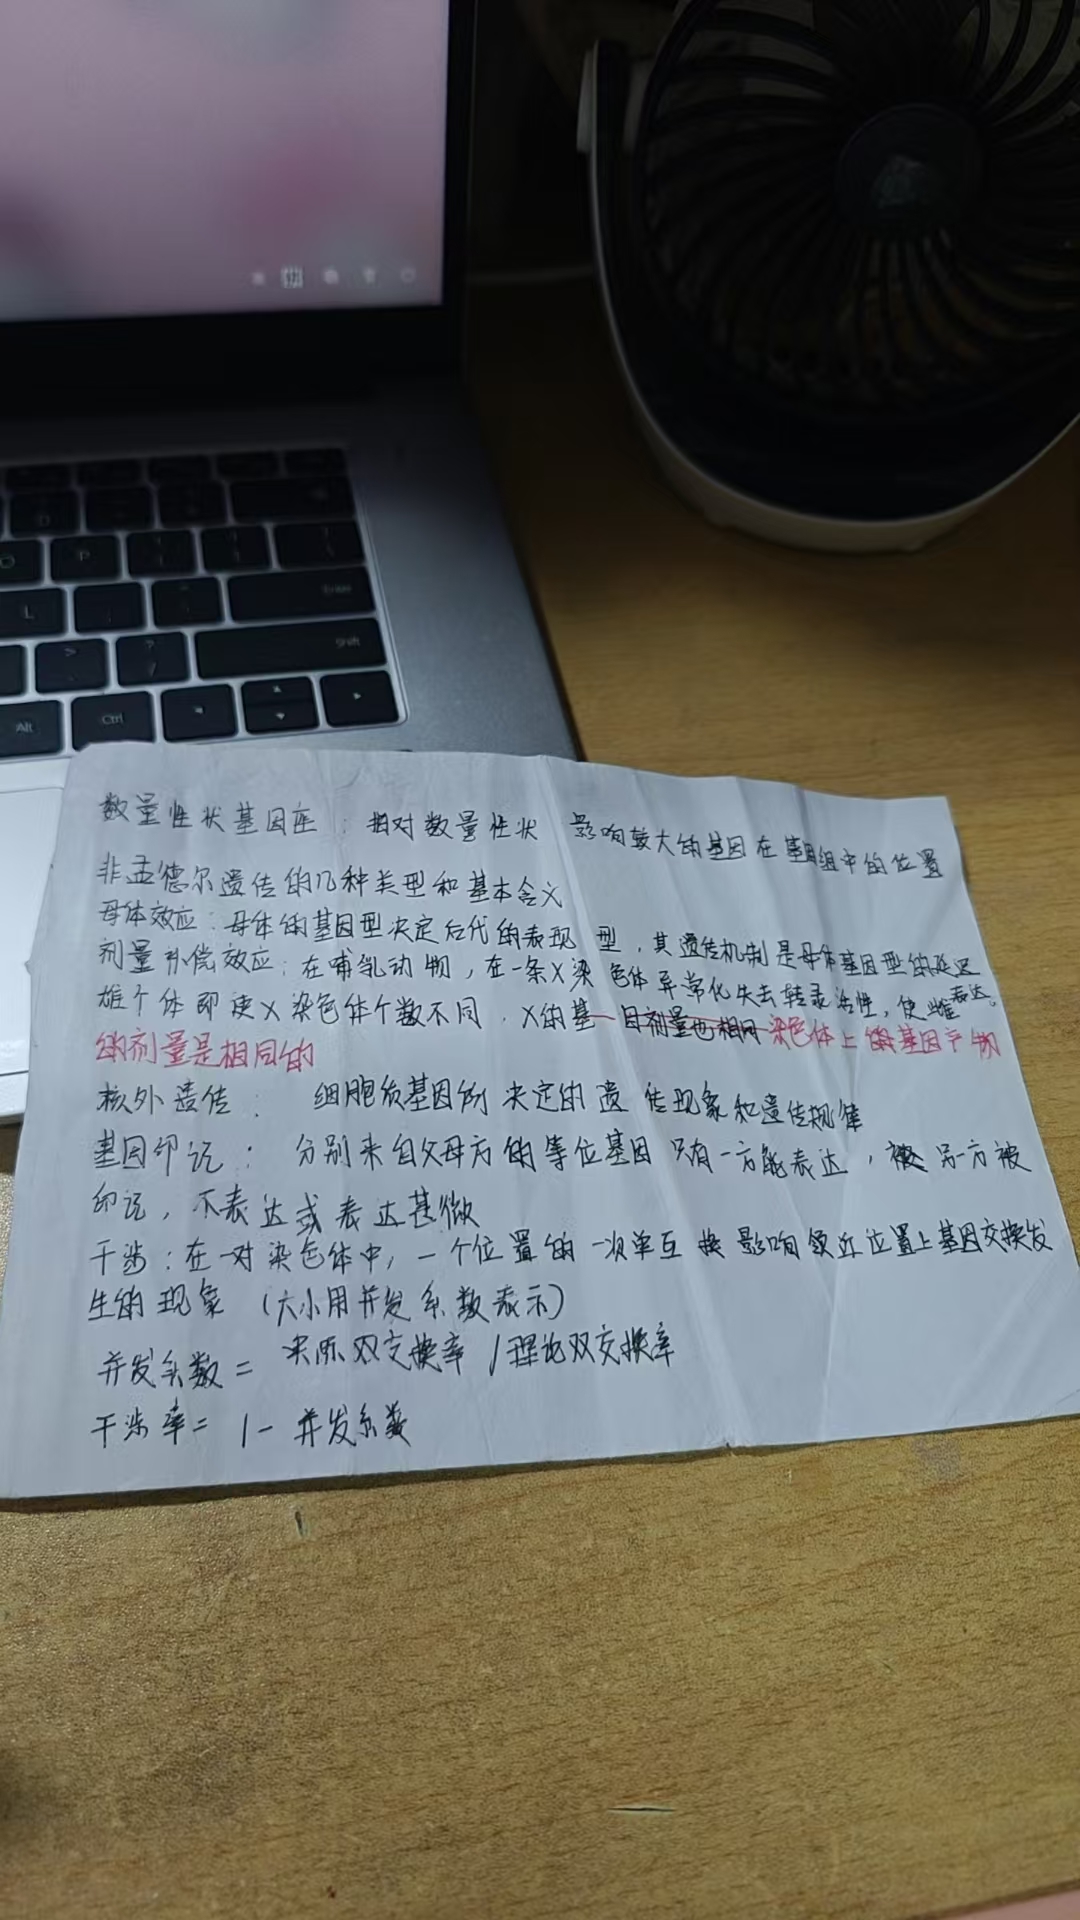 P
L
Enter
Shift
Alt
Ctrl
数量性状基因座：相对数量性状 影响较大的基因在基因组中的位置
非孟德尔遗传的几种类型和基本含义
母体效应：母体的基因型决定后代的表现型，其遗传机制是母体基因型的延迟表达。
剂量补偿效应：在哺乳动物，在一条X染色体异常化失去转录活性，使雌
雄个体即使X染色体个数不同，X的基因剂量也相同染色体上的基因产物
的剂量是相同的
核外遗传：细胞质基因所决定的遗传现象和遗传规律
基因印记：分别来自父母方的等位基因只有一方能表达，被另一方被
印记，不表达或表达甚微
干涉：在一对染色体中，一个位置的一次单互换影响领近位置上基因交换发
生的现象（大小用并发系数表示）
并发系数=实际双交换率/理论双交换率
干涉率=1-并发系数